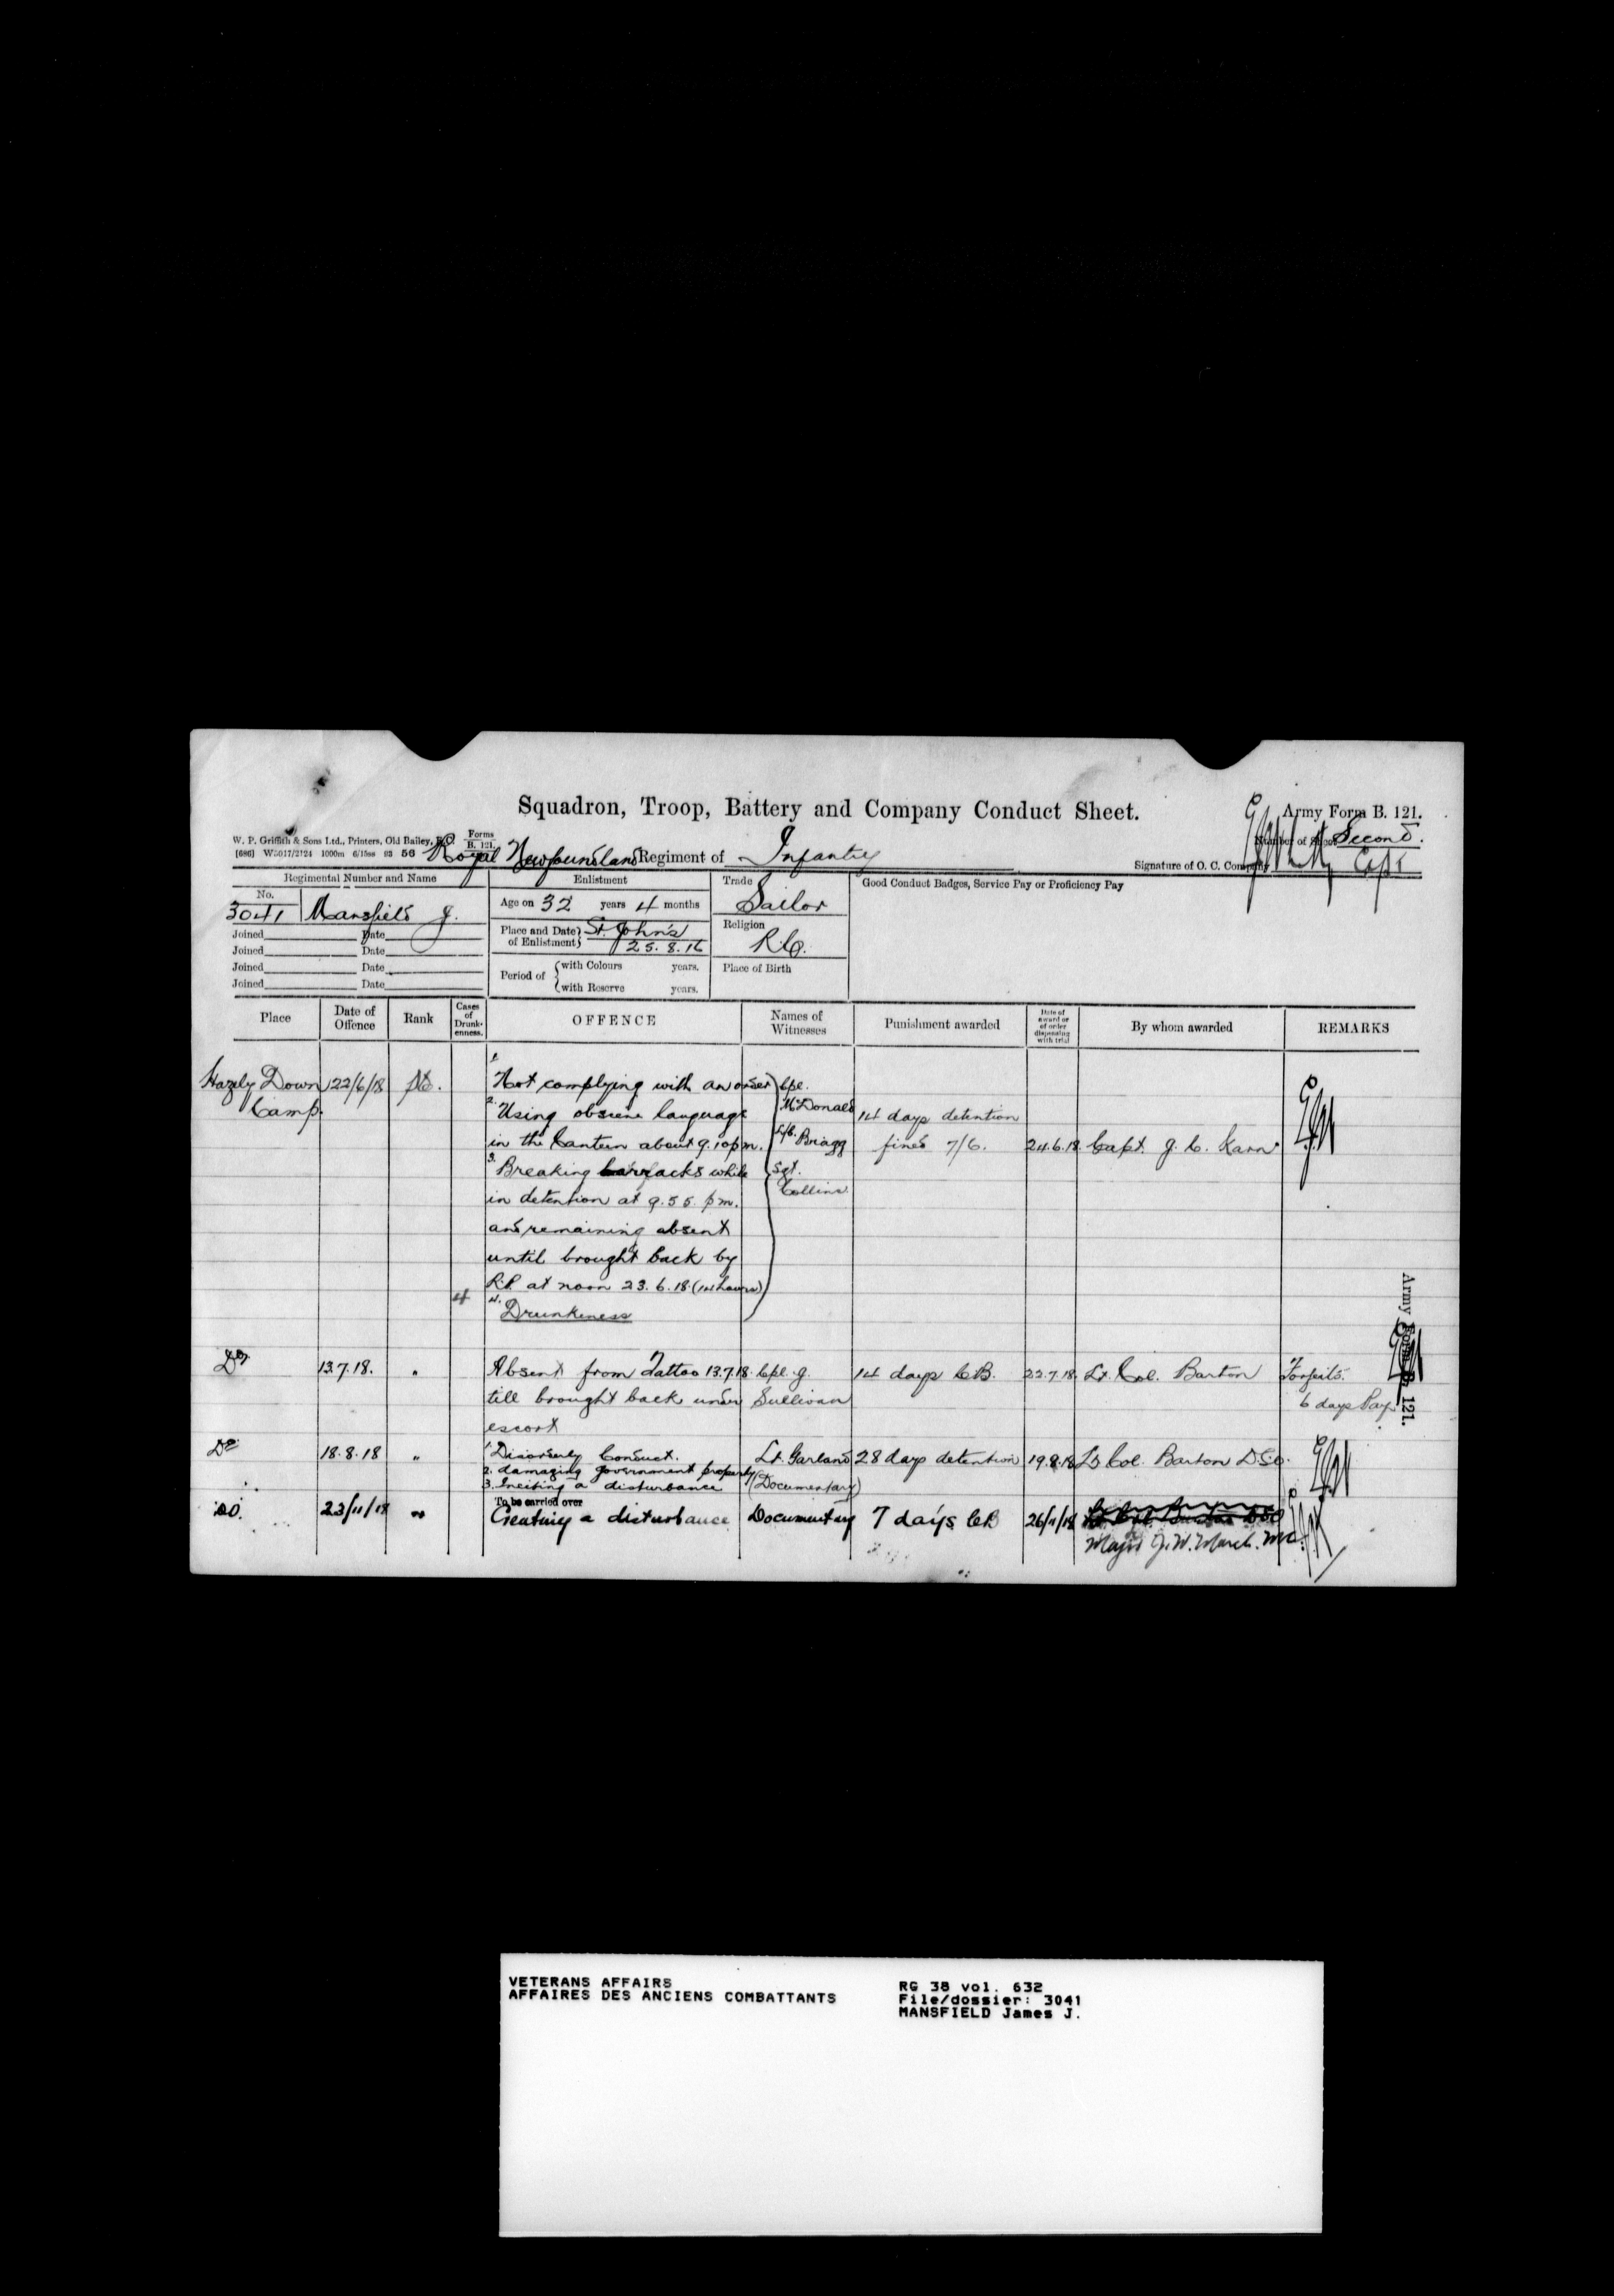 Squadron, Troop, Battery and Company Conduct Sheet.
Army Form B. 121.
W. P. Griffith & Sons Ltd., Printers, Old Bailey, E.C.
Forms
B. 121.
[686] W5017/2124 1000m 6/15ss 93 56
Number of Sheet Second.
Royal Newfoundland Regiment of Infantry
Signature of O. C. Company Capt
Regimental Number and Name
Enlistment
Trade
Good Conduct Badges, Service Pay or Proficiency Pay
No.
3041 Mansfield J.
Age on 32 years 4 months
Sailor
Joined Date
Joined Date
Joined Date
Joined Date
Place and Date of Enlistment St. John's
25.8.16
Religion
R.C.
Period of with Colours years.
with Reserve years.
Place of Birth
Place
Date of Offence
Rank
Cases of Drunkenness.
OFFENCE
Names of Witnesses
Punishment awarded
Date of award or of order disposing with trial
By whom awarded
REMARKS
1. Not complying with an order Cpl.
Hazely Down 22/6/18 Pte.
Camp.
2. Using obscene language McDonald 14 days detention
in the Canteen about 9.10 p.m. L/C. Bragg fined 7/6. 24.6.18 Capt. J. C. Karn
3. Breaking barracks while Sgt.
in detention at 9.55 p.m. Collins
and remaining absent
until brought back by
R.P. at noon 23.6.18 (14 hours)
4 4. Drunkeness
Do 13.7.18. " Absent from Tattoo 13.7.18 Cpl. J. 14 days C.B. 22.7.18. Lt. Col. Barton Forfeits
till brought back under Sullivan 6 days Pay
escort
Do 18.8.18 " 1. Disorderly Conduct. Lt. Garland 28 days detention 19.8.18 Lt Col. Barton D.S.O.
2. damaging government property
3. Inciting a disturbance (Documentary)
To be carried over
Do. 23/11/18 " Creating a disturbance Documentary 7 days CB 26/11/18
Major J. W. March. MC.
Army Form B. 121.
VETERANS AFFAIRS
AFFAIRES DES ANCIENS COMBATTANTS
RG 38 vol. 632
File/dossier: 3041
MANSFIELD James J.